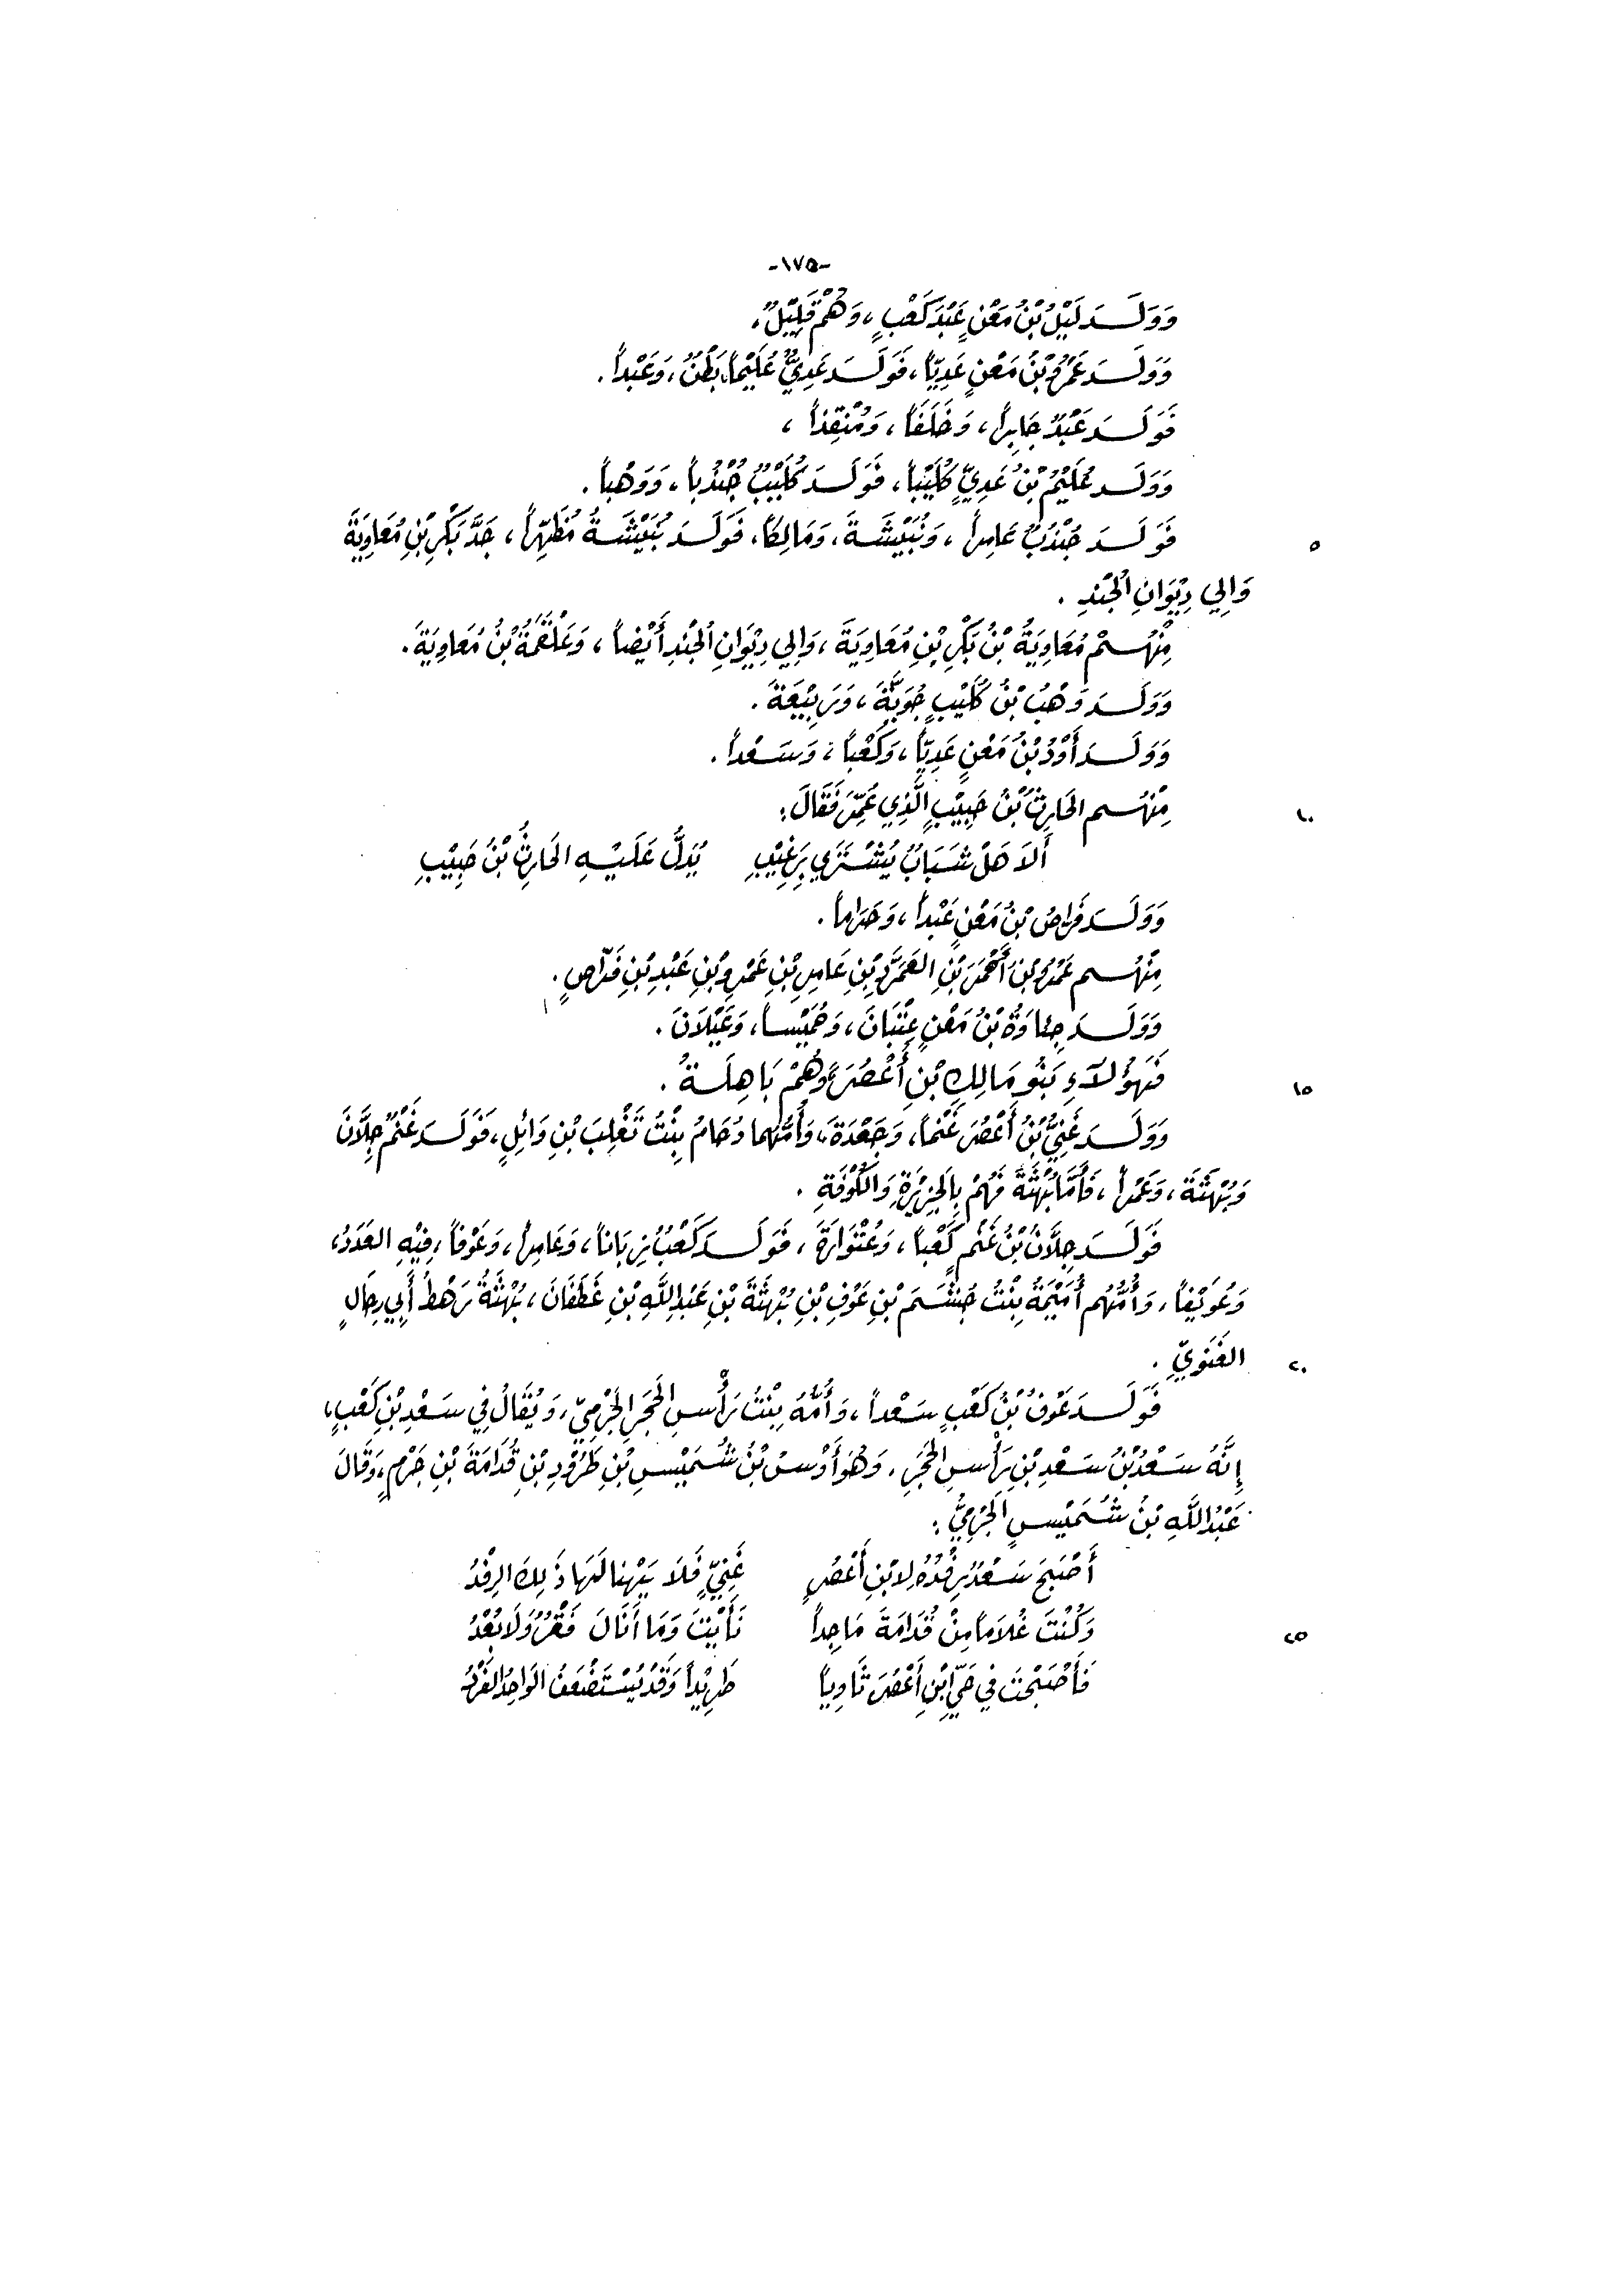 -١٧٥-
وَوَلَدَ لَيْلُ بْنُ مَعْنٍ عَبْدَ كَعْبٍ، وَهُمْ قَلِيْلٌ،
وَوَلَدَ عَمْرُو بْنُ مَعْنٍ عَدِيّاً، فَوَلَدَ عَدِيٌّ عُلَيْماً، بَطْنٌ، وَعَبْداً.
فَوَلَدَ عَبْدٌ جَابِراً، وَخَلَفاً، وَمُنْقِذاً،
وَوَلَدَ عُلَيْمُ بْنُ عَدِيٍّ كُلَيْباً، فَوَلَدَ كُلَيْبٌ جُنْدُباً، وَوَهْباً.
٥ فَوَلَدَ جُنْدُبٌ عَامِراً، وَنُبَيْشَةَ، وَمَالِكاً، فَوَلَدَ نُبَيْشَةُ مُطَهِّراً، جَدَّ بَكْرِ بْنِ مُعَاوِيَةَ
وَالِي دِيْوَانِ الجُنْدِ.
مِنْهُمْ مُعَاوِيَةُ بْنُ بَكْرِ بْنِ مُعَاوِيَةَ، وَالِي دِيْوَانِ الجُنْدِ أَيْضاً، وَعَلْقَمَةُ بْنُ مُعَاوِيَةَ.
وَوَلَدَ وَهْبُ بْنُ كُلَيْبٍ جُوَيَّةَ، وَرَبِيْعَةَ.
وَوَلَدَ أَوْدُ بْنُ مَعْنٍ عَدِيّاً، وَكَعْباً، وَسَعْداً.
١٠ مِنْهُم الحَارِثُ بْنُ حَبِيْبٍ الَّذِي عُمِّرَ فَقَالَ:
أَلاَ هَلْ شَبَابٌ يُشْتَرَى بِرَغِيْبِ يُدَلُّ عَلَيْهِ الحَارِثُ بْنُ حَبِيْبِ
وَوَلَدَ فَرَّاصُ بْنُ مَعْنٍ عَبْداً، وَحَرَاماً.
مِنْهُم عَمْرُو بْنُ أَحْمَرَ بْنِ العَمَرَّدِ بْنِ عَامِرِ بْنِ عَمْرِو بْنِ عَبْدِ بْنِ فَرَّاصٍ.
وَوَلَدَ جِئَاوَةُ بْنُ مَعْنٍ عِتْبَانَ، وَحُمَيْساً، وَعَيْلاَنَ.
١٥ فَهَؤُلاَءِ بَنُو مَالِكِ بْنِ أَعْصُرَ، وَهُمْ بَاهِلَةُ.
وَوَلَدَ غَنِيُّ بْنُ أَعْصُرَ غَنْماً، وَجَعْدَةَ، وَأُمُّهُما دُحَامُ بِنْتُ تَغْلِبَ بْنِ وَائِلٍ، فَوَلَدَ غَنْمٌ جِلاَّنَ
وَبُهْثَةَ، وَعَمْراً، فَأَمَّا بُهْثَةُ فَهُمْ بِالجَزِيْرَةِ وَالكُوْفَةِ.
فَوَلَدَ جِلاَّنُ بْنُ غَنْمٍ كَعْباً، وَعُتْوَارَةَ، فَوَلَدَ كَعْبٌ زِبَاناً، وَعَامِراً، وَعَوْفاً، فِيْهِ العَدَدُ،
وَعُوَيْفاً، وَأُمُّهُم أُمَيْمَةُ بِنْتُ جُشَمَ بْنِ عَوْفِ بْنِ بُهْثَةَ بْنِ عَبْدِ اللَّهِ بْنِ غَطَفَانَ، بُهْثَةُ رَهْطُ أَبِي رِحَالٍ
٢٠ الغَنَوِيِّ.
فَوَلَدَ عَوْفُ بْنُ كَعْبٍ سَعْداً، وَأُمُّهُ بِنْتُ رَأْسِ الحَجَرِ الجَرْمِيِّ، وَيُقَالُ فِي سَعْدِ بْنِ كَعْبٍ،
إِنَّهُ سَعْدُ بْنُ سَعْدِ بْنِ رَأْسِ الحَجَرِ، وَهُوَ أَوْسُ بْنُ شُمَيْسِ بْنِ طَرُوْدِ بْنِ قُدَامَةَ بْنِ جَرْمٍ، وَقَالَ
عَبْدُ اللَّهِ بْنُ شُمَيْسٍ الجَرْمِيُّ:
أَصْبَحَ سَعْدٌ رِفْدُهُ لابْنِ أَعْصُرٍ غَنِيٍّ فَلاَ يَهْنَا لَهَا ذَلِكَ الرِفْدُ
٢٥ وَكُنْتَ غُلاَماً مِنْ قُدَامَةَ مَاجِداً نَأَيْتَ وَمَا أَنَالَ فَقْرٌ وَلاَ بُعْدُ
فَأَصْبَحْتَ فِي حَيِّ ابْنِ أَعْصُرَ ثَاوِياً طَرِيْداً وَقَدْ يُسْتَضْعَفُ الوَاحِدُ الفَرْدُ